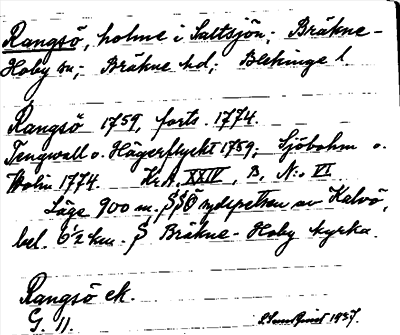 Rangsö, holme i Saltsjön; Bräkne-
Hoby sn; Bräkne hd; Blekinge l.
Rangsö 1759, forts. 1774.
Tengwall o. Hägerflyckt 1759; Sjöbohm o.
Wolin 1774. Kr. A. XXIV, B, N:o VI
Läge 900 m. SSÖ sydspetsen av Kalvö,
bel. 6½ km. S Bräkne-Hoby kyrka.
Rangsö ek.
G. 11.
1937.